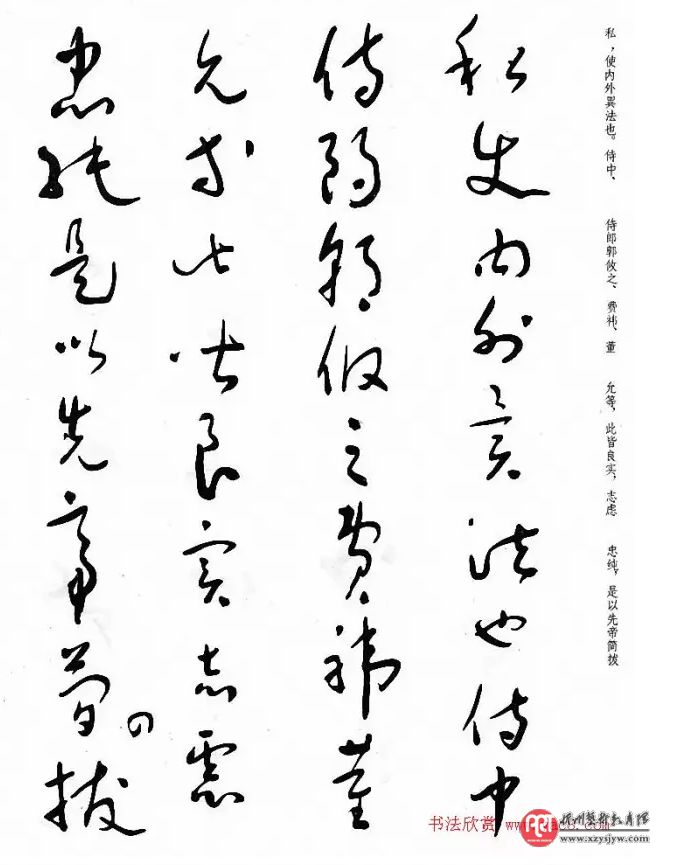 私,使内外異法也。侍中、 侍郎郭攸之、费祎、董 允等,此皆良实,志虑 忠纯,是以先帝简拔
私使内外異法也侍中
侍郎郭攸之費禕董
允等此皆良实志慮
忠純是以先帝簡拔
书法欣赏
www.xzysjyw.com